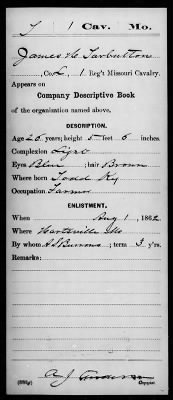 T | 1 | Cav. | Mo.
James H. Tarbutton
, Co. L, 1 Reg't Missouri Cavalry.
Appears on
Company Descriptive Book
of the organization named above.
DESCRIPTION.
Age 26 years; height 5 feet 6 inches.
Complexion Light
Eyes Blue ; hair Brown
Where born Todd Ky
Occupation Farmer
ENLISTMENT.
When Aug 1 , 1862
Where Hartsville Mo
By whom ; term 3 y'rs.
Remarks:
A J Anderson
Copyist.